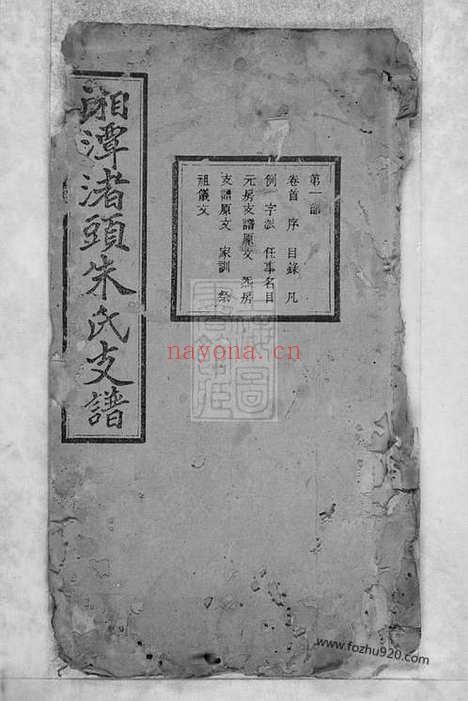 湘潭渚頭朱氏支譜
第一部
卷首 序 目錄 凡
例 字派 任事名目
元房支譜原文 亮房
支譜原文 家訓 祭
祖儀文
nayona.cn
www.fozhu920.com